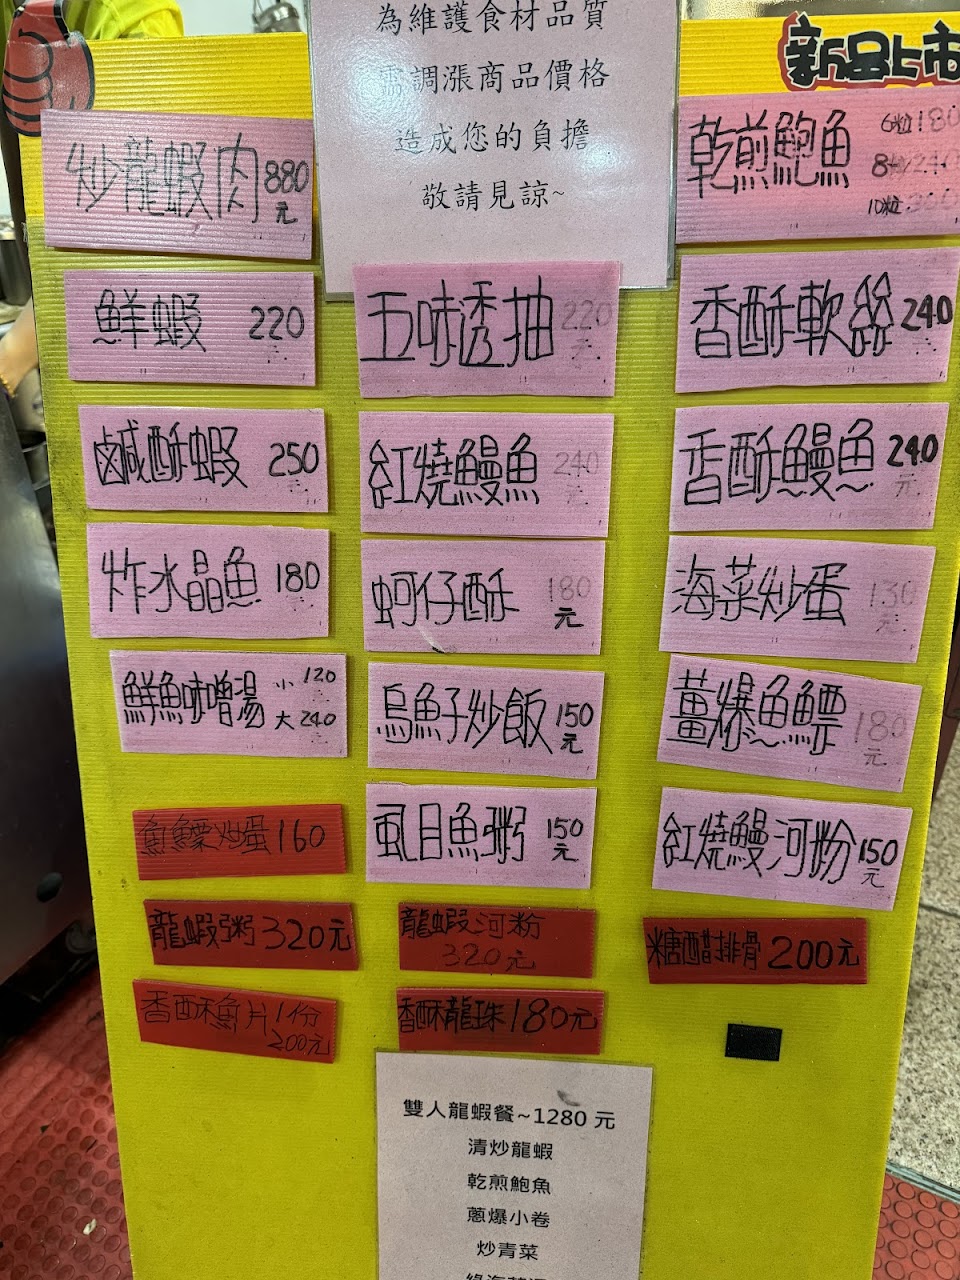 為維護食材品質
需調漲商品價格
造成您的負擔
敬請見諒~
新品上市
炒龍蝦肉 880元
鮮蝦 220元
鹹酥蝦 250元
炸水晶魚 180
鮮魚味噌湯 小 120
大 240
魚鰾炒蛋 160
龍蝦粥 320元
香酥魚片 1份
200元
五味透抽 220元
紅燒鰻魚 240元
蚵仔酥 180元
烏魚子炒飯 150元
虱目魚粥 150元
龍蝦河粉
320元
香酥龍珠 180元
乾煎鮑魚 6粒 180
8粒 240
10粒 300
香酥軟絲 240元
香酥鰻魚 240元
海菜炒蛋 130元
薑爆魚鰾 180元
紅燒鰻河粉 150元
糖醋排骨 200元
雙人龍蝦餐~1280 元
清炒龍蝦
乾煎鮑魚
蔥爆小卷
炒青菜